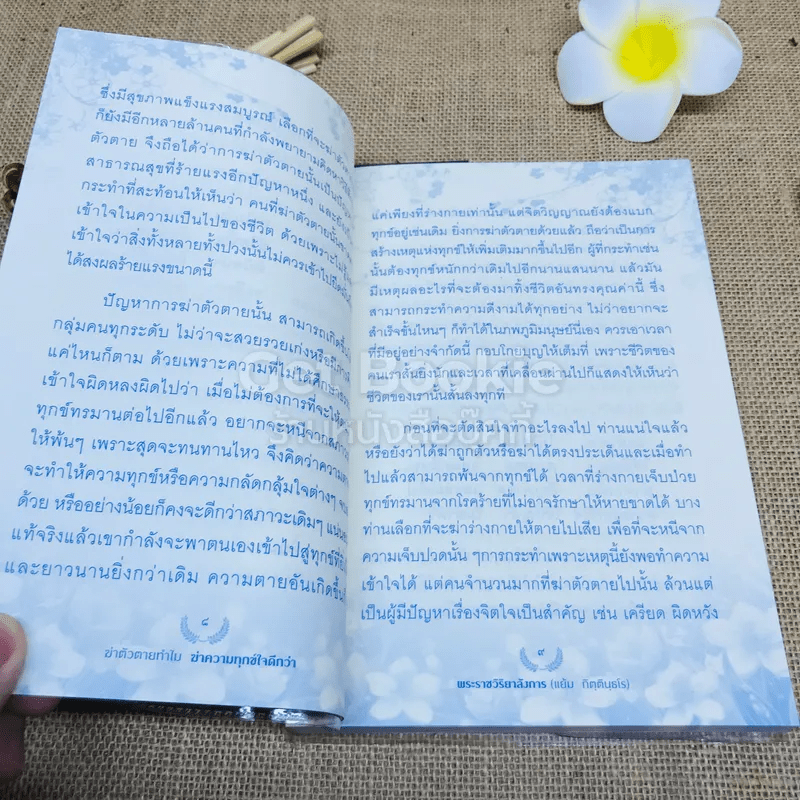 ซึ่งมีสุขภาพแข็งแรงสมบูรณ์ เลือกที่จะฆ่าตัว
ก็ยังมีอีกหลายล้านคนที่กำลังพยายามคิดหาวิธี
ตัวตาย จึงถือได้ว่าการฆ่าตัวตายนั้นเป็นปัญ
สาธารณสุขที่ร้ายแรงอีกปัญหาหนึ่ง และยัง
กระทำที่สะท้อนให้เห็นว่า คนที่ฆ่าตัวตายนั้น
เข้าใจในความเป็นไปของชีวิต ด้วยเพราะไม่
เข้าใจว่าสิ่งทั้งหลายทั้งปวงนั้นไม่ควรเข้าไปยึด
ได้ส่งผลร้ายแรงขนาดนี้
ปัญหาการฆ่าตัวตายนั้น สามารถเกิดขึ้น
กลุ่มคนทุกระดับ ไม่ว่าจะสวยรวยเก่งหรือมี
แค่ไหนก็ตาม ด้วยเพราะความที่ไม่ได้ศึกษา
เข้าใจผิดหลงผิดไปว่า เมื่อไม่ต้องการที่จะให้
ทุกข์ทรมานต่อไปอีกแล้ว อยากจะหนีจากสภาว
ให้พ้นๆ เพราะสุดจะทนทานไหว จึงคิดว่าความตาย
จะทำให้ความทุกข์หรือความกลัดกลุ้มใจต่างๆ จบ
ด้วย หรืออย่างน้อยก็คงจะดีกว่าสภาวะเดิมๆ แน่
แท้จริงแล้วเขากำลังจะพาตนเองเข้าไปสู่ทุกข์ที่
และยาวนานยิ่งกว่าเดิม ความตายอันเกิดขึ้น
๘
ฆ่าตัวตายทำไม ฆ่าความทุกข์ใจดีกว่า
แค่เพียงที่ร่างกายเท่านั้น แต่จิตวิญญาณยังต้องแบก
ทุกข์อยู่เช่นเดิม ยิ่งการฆ่าตัวตายด้วยแล้ว ถือว่าเป็นการ
สร้างเหตุแห่งทุกข์ให้เพิ่มเติมมากขึ้นไปอีก ผู้ที่กระทำเช่น
นั้นต้องทุกข์หนักกว่าเดิมไปอีกนานแสนนาน แล้วมัน
มีเหตุผลอะไรที่จะต้องมาทิ้งชีวิตอันทรงคุณค่านี้ ซึ่ง
สามารถกระทำความดีงามได้ทุกอย่าง ไม่ว่าอยากจะ
สำเร็จขั้นไหนๆ ก็ทำได้ในภพภูมิมนุษย์นี้เอง ควรเอาเวลา
ที่มีอยู่อย่างจำกัดนี้ กอบโกยบุญให้เต็มที่ เพราะชีวิตของ
คนเราสั้นยิ่งนักและเวลาที่เคลื่อนผ่านไปก็แสดงให้เห็นว่า
ชีวิตของเรานั้นสั้นลงทุกที
ก่อนที่จะตัดสินใจทำอะไรลงไป ท่านแน่ใจแล้ว
หรือยังว่าได้ฆ่าถูกตัวหรือฆ่าได้ตรงประเด็นและเมื่อทำ
ไปแล้วสามารถพ้นจากทุกข์ได้ เวลาที่ร่างกายเจ็บป่วย
ทุกข์ทรมานจากโรคร้ายที่ไม่อาจรักษาให้หายขาดได้ บาง
ท่านเลือกที่จะฆ่าร่างกายให้ตายไปเสีย เพื่อที่จะหนีจาก
ความเจ็บปวดนั้น ๆการกระทำเพราะเหตุนี้ยังพอทำความ
เข้าใจได้ แต่คนจำนวนมากที่ฆ่าตัวตายไปนั้น ล้วนแต่
เป็นผู้มีปัญหาเรื่องจิตใจเป็นสำคัญ เช่น เครียด ผิดหวัง
๙
พระราชวิริยาลังการ (แย้ม กิตฺตินฺธโร)
Got Bookie
ร้านหนังสือบุ๊กกี้